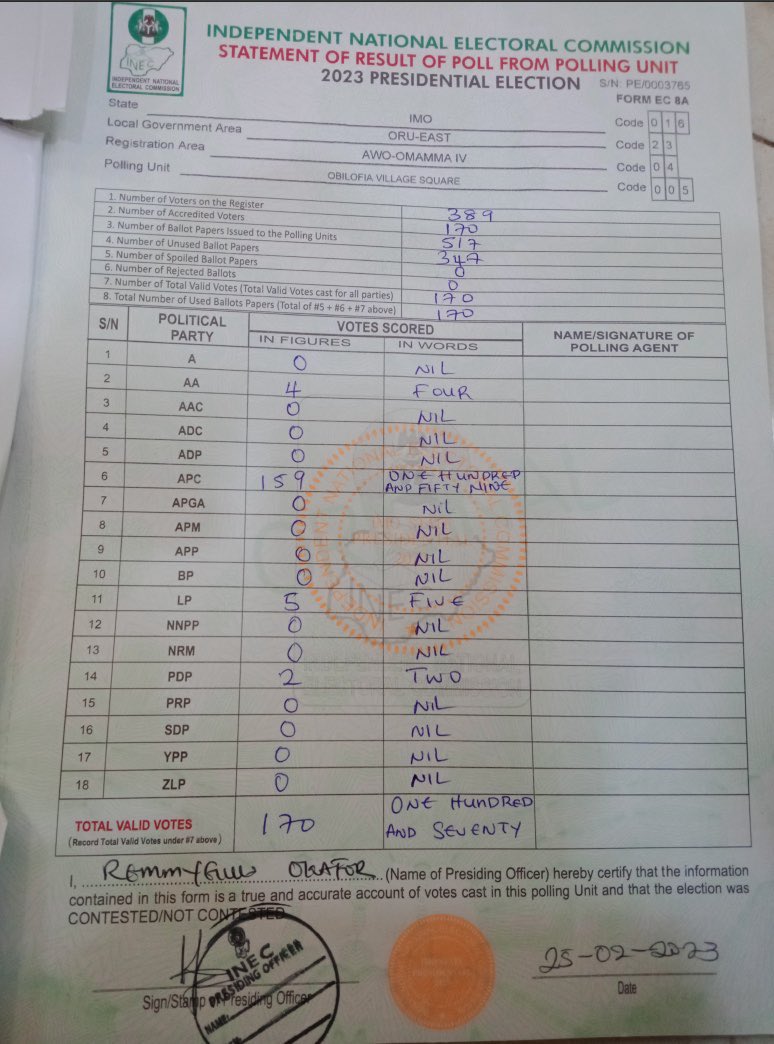 INEC
INDEPENDENT NATIONAL
ELECTORAL COMMISSION
INDEPENDENT NATIONAL ELECTORAL COMMISSION
STATEMENT OF RESULT OF POLL FROM POLLING UNIT
2023 PRESIDENTIAL ELECTION S/N: PE/0003765
FORM EC 8A
State IMO Code 0 1 6
Local Government Area ORU-EAST Code 2 3
Registration Area AWO-OMAMMA IV Code 0 4
Polling Unit OBILOFIA VILLAGE SQUARE Code 0 0 5
1. Number of Voters on the Register 389
2. Number of Accredited Voters 170
3. Number of Ballot Papers Issued to the Polling Units 517
4. Number of Unused Ballot Papers 347
5. Number of Spoiled Ballot Papers 0
6. Number of Rejected Ballots 0
7. Number of Total Valid Votes (Total Valid Votes cast for all parties) 170
8. Total Number of Used Ballots Papers (Total of #5 + #6 + #7 above) 170
S/N POLITICAL PARTY VOTES SCORED NAME/SIGNATURE OF POLLING AGENT
IN FIGURES IN WORDS
1 A 0 NIL
2 AA 4 FOUR
3 AAC 0 NIL
4 ADC 0 NIL
5 ADP 0 NIL
6 APC 159 ONE HUNDRED AND FIFTY NINE
7 APGA 0 NIL
8 APM 0 NIL
9 APP 0 NIL
10 BP 0 NIL
11 LP 5 FIVE
12 NNPP 0 NIL
13 NRM 0 NIL
14 PDP 2 TWO
15 PRP 0 NIL
16 SDP 0 NIL
17 YPP 0 NIL
18 ZLP 0 NIL
TOTAL VALID VOTES 170 ONE HUNDRED AND SEVENTY
(Record Total Valid Votes under #7 above)
I, OKAFOR (Name of Presiding Officer) hereby certify that the information
contained in this form is a true and accurate account of votes cast in this polling Unit and that the election was
CONTESTED/NOT CONTESTED
INEC
PRESIDING OFFICER
NAME:
25-02-2023
Sign/Stamp of Presiding Officer
Date